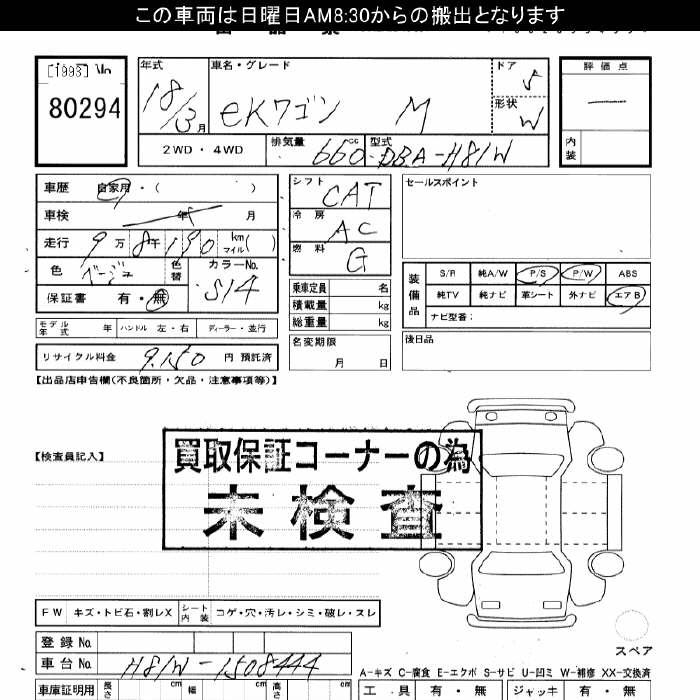 この車両は日曜日AM8:30からの搬出となります
[1993] No
80294
年式 車名・グレード ドア 評価点
18/3月 eKワゴン M 5
形状 W
内装
2WD・4WD 排気量 660cc 型式 DBA-H81W
車歴 自家用・( )
車検 年 月
走行 9万8千190 km マイル( )
色 ベージュ 色替 カラーNo. S14
保証書 有・無
モデル年式 年 ハンドル 左・右 ディーラー・並行
リサイクル料金 9.150 円 預託済
シフト CAT
冷房 AC
燃料 G
乗車定員 名
積載量 kg
総重量 kg
名変期限 月 日
セールスポイント
装備品 S/R 純A/W P/S P/W ABS
純TV 純ナビ 革シート 外ナビ エアB
ナビ型番:
後日品
【出品店申告欄(不良箇所・欠品・注意事項等)】
【検査員記入】
買取保証コーナーの為
未検査
FW キズ・トビ石・割レX シート内装 コゲ・穴・汚レ・シミ・破レ・スレ
スペア
登録No
車台No H81W-1508444
A-キズ C-腐食 E-エクボ S-サビ U-凹ミ W-補修 XX-交換済
車庫証明用 長さ cm 幅 cm 高さ cm
工具 有・無 ジャッキ 有・無